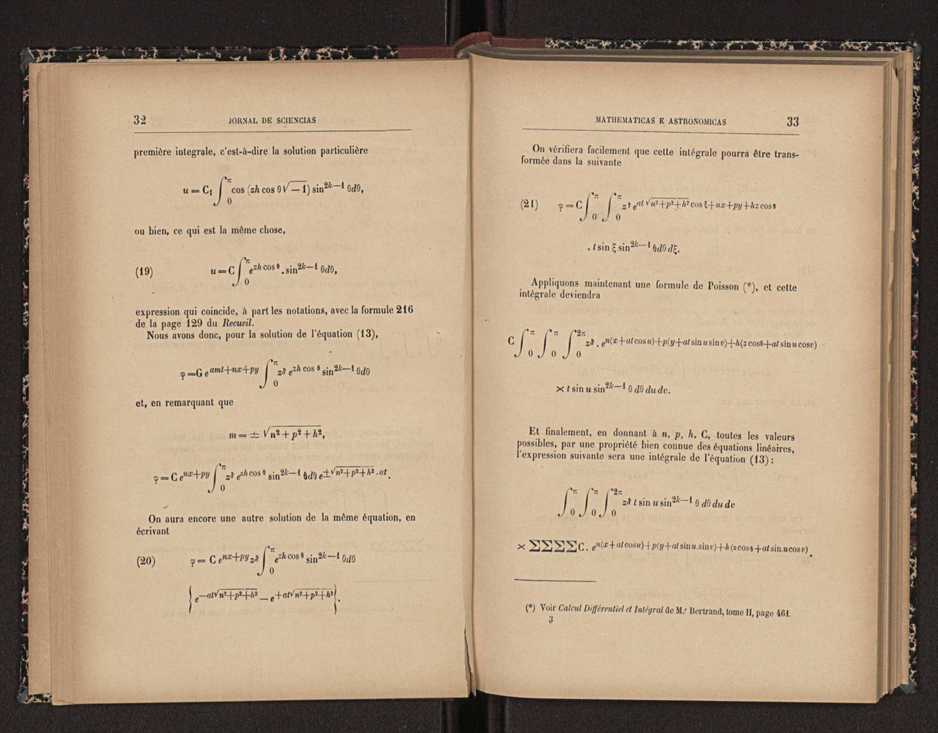 32 JORNAL DE SCIENCIAS
première integrale, c'est-à-dire la solution particulière
u = C₁ ∫₀^π cos (zh cos θ √−1) sin^{2k−1} θdθ,
ou bien, ce qui est la même chose,
(19) u = C ∫₀^π e^{zh cos θ} . sin^{2k−1} θdθ,
expression qui coincide, à part les notations, avec la formule 216
de la page 129 du Recueil.
Nous avons donc, pour la solution de l'équation (13),
φ = G e^{amt+nx+py} ∫₀^π z^δ e^{zh cos θ} sin^{2k−1} θdθ
et, en remarquant que
m = ± √n² + p² + h²,
φ = C e^{nx+py} ∫₀^π z^δ e^{zh cos θ} sin^{2k−1} θdθ e^{±√n²+p²+h² . at}.
On aura encore une autre solution de la même équation, en
écrivant
(20) φ = C e^{nx+py} z^δ ∫₀^π e^{zh cos θ} sin^{2k−1} θdθ
{ e^{−at√n²+p²+h²} − e^{+at√n²+p²+h²} }.
MATHEMATICAS E ASTRONOMICAS 33
On vérifiera facilement que cette intégrale pourra être trans-
formée dans la suivante
(21) φ = C ∫₀^π ∫₀^π z^δ e^{at √n²+p²+h² cos ξ+nx+py+hz cos θ}
. t sin ξ sin^{2k−1} θdθ dξ.
Appliquons maintenant une formule de Poisson (*), et cette
intégrale deviendra
C ∫₀^π ∫₀^π ∫₀^{2π} z^δ . e^{n(x+at cos u)+p(y+at sin u sin v)+h(z cos θ+at sin u cos v)}
× t sin u sin^{2k−1} θ dθ du dv.
Et finalement, en donnant à n, p, h, C, toutes les valeurs
possibles, par une propriété bien connue des équations linéaires,
l'expression suivante sera une intégrale de l'équation (13):
∫₀^π ∫₀^π ∫₀^{2π} z^δ t sin u sin^{2k−1} θ dθ du dv
× ΣΣΣΣ C. e^{n(x+at cos u)+p(y+at sin u sin v)+h(z cos θ+at sin u cos v)}.
(*) Voir Calcul Différentiel et Intégral de M.r Bertrand, tome II, page 461.
3